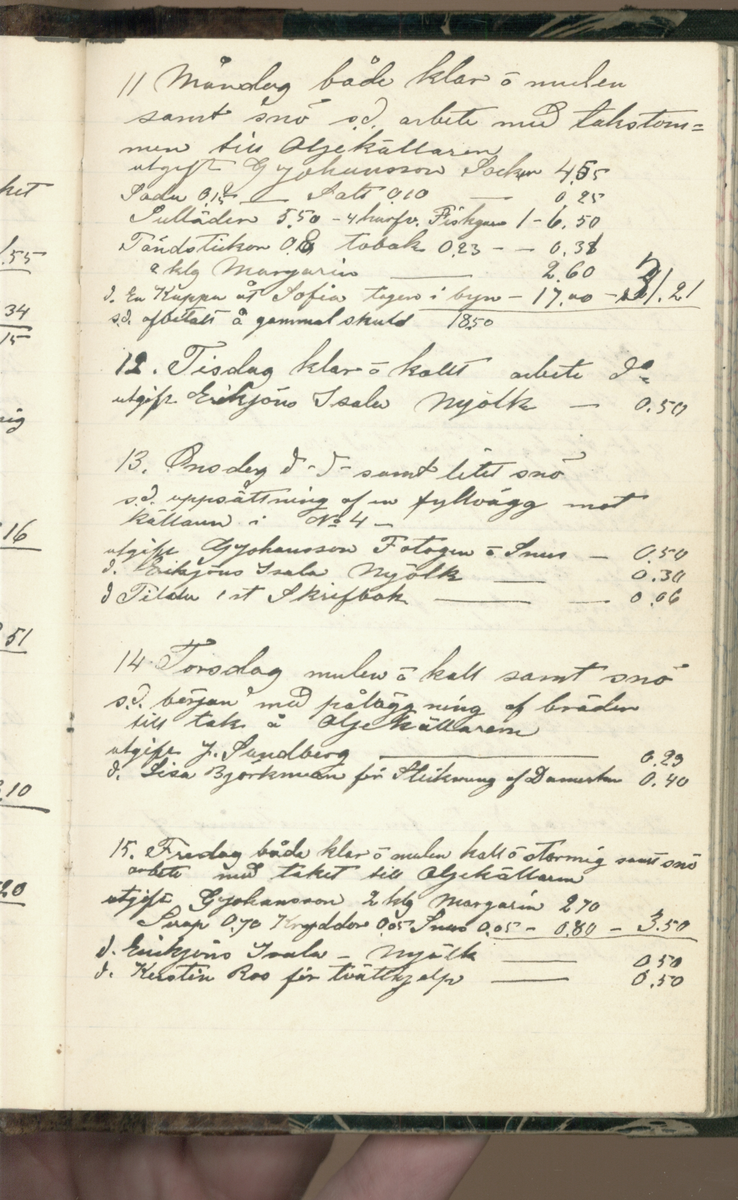 ket
1.55
34
15
ig
16
51
.10
20
11 Måndag både klar ō mulen
samt snö s.d. arbete med takstom=
men till Oljekällaren
utgift G Johansson Socker 4,55
Soda 0,15 — Salt 0,10 — 0,25
Sulläder 5.50 - 4 hurfv. Fiskgarn 1 - 6.50
Tändstickor 0,8 tobak 0,23 - - 0.31
2 klg Margarin — 2.60
d. En Kappa åt Sofia tagen i byn - 17.00 - 31.21
s.d. afbetalt å gammal skuld 18.50
12. Tisdag klar ō kallt arbete do
utgift Erikjöns Isala Mjölk — 0.50
13. Onsdag d - d - samt litet snö
s.d. uppsättning af en fyllvägg mot
källaren i No 4 -
utgift G Johansson Fotogen ō Snus — 0.50
d. Erikjöns Isala Mjölk — 0.30
d Tilda 1 st Skrifbok — — 0.06
14 Torsdag mulen ō kall samt snö
s.d. början med påläggning af bräder
till tak å Oljekällaren
utgift J. Sundberg — 0.29
d. Lisa Björkman för Stickning af 0.40
15. Fredag både klar ō mulen kall ō stormig samt snö
arbete med taket till Oljekällaren
utgift G Johansson 2 klg Margarin 2.70
Sirap 0.70 Kryddor 0.05 Snus 0.05 - 0.80 - 3.50
d. Erikjöns Isala - Mjölk — 0.50
d. Kerstin Roo för tvätthjelp — 0.50